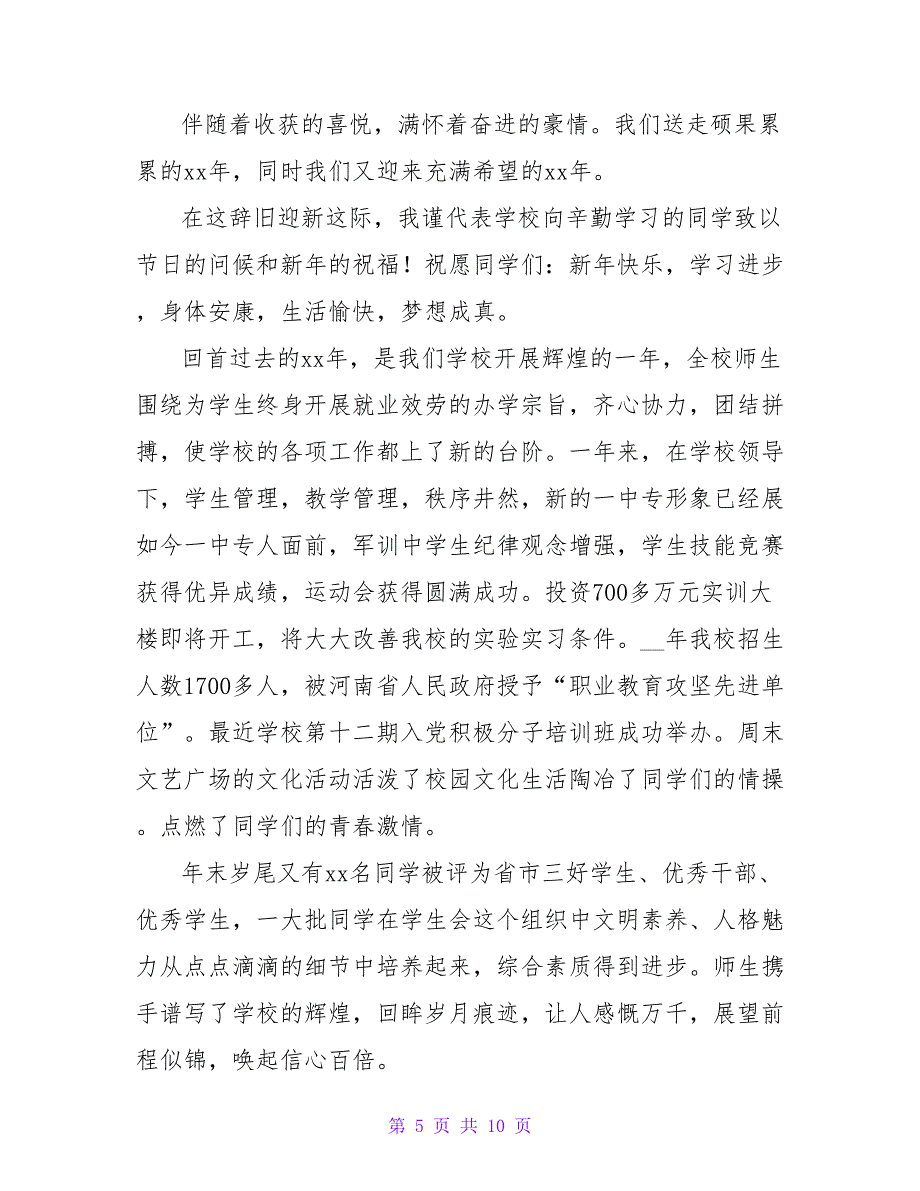 伴随着收获的喜悦，满怀着奋进的豪情。我们送走硕果累
累的xx年，同时我们又迎来充满希望的xx年。
在这辞旧迎新这际，我谨代表学校向辛勤学习的同学致以
节日的问候和新年的祝福！祝愿同学们：新年快乐，学习进步
，身体安康，生活愉快，梦想成真。
回首过去的xx年，是我们学校开展辉煌的一年，全校师生
围绕为学生终身开展就业效劳的办学宗旨，齐心协力，团结拼
搏，使学校的各项工作都上了新的台阶。一年来，在学校领导
下，学生管理，教学管理，秩序井然，新的一中专形象已经展
如今一中专人面前，军训中学生纪律观念增强，学生技能竞赛
获得优异成绩，运动会获得圆满成功。投资700多万元实训大
楼即将开工，将大大改善我校的实验实习条件。__年我校招生
人数1700多人，被河南省人民政府授予“职业教育攻坚先进单
位”。最近学校第十二期入党积极分子培训班成功举办。周末
文艺广场的文化活动活泼了校园文化生活陶冶了同学们的情操
。点燃了同学们的青春激情。
年末岁尾又有xx名同学被评为省市三好学生、优秀干部、
优秀学生，一大批同学在学生会这个组织中文明素养、人格魅
力从点点滴滴的细节中培养起来，综合素质得到进步。师生携
手谱写了学校的辉煌，回眸岁月痕迹，让人感慨万千，展望前
程似锦，唤起信心百倍。
第 5 页 共 10 页